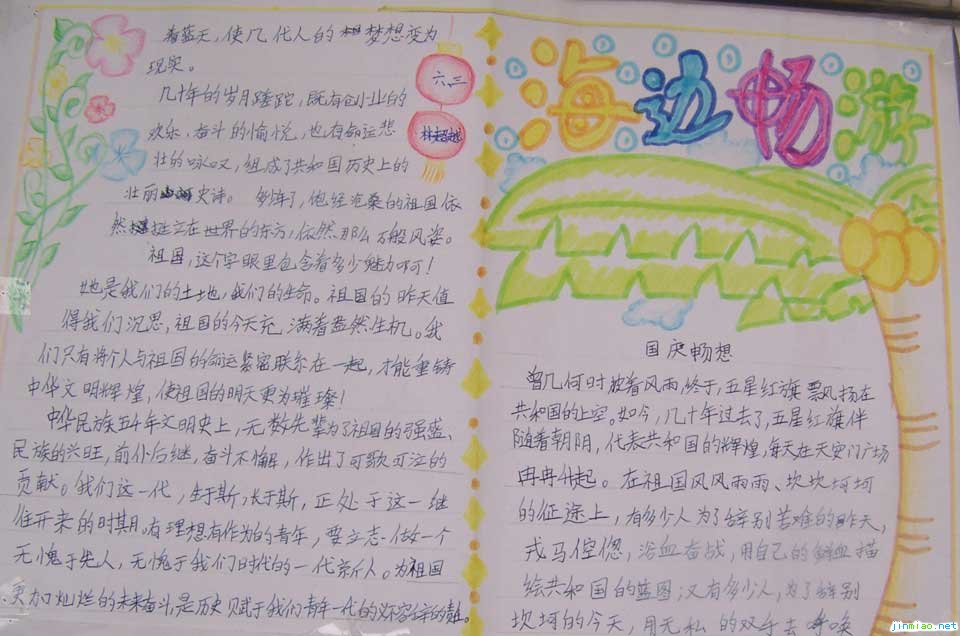 海边畅游
国庆畅想
曾几何时披着风雨,终于,五星红旗飘扬在
共和国的上空。如今,几十年过去了,五星红旗伴
随着朝阳,代表共和国的辉煌,每天在天安门广场
冉冉升起。在祖国风风雨雨、坎坎坷坷
的征途上,有多少人为了辞别苦难的昨天,
戎马倥偬,浴血奋战,用自己的鲜血描
绘共和国的蓝图;又有多少人,为了辞别
坎坷的今天,用无私的双手去呼唤
着蓝天,使几代人的梦想变为
现实。
几十年的岁月蹉跎,既有创业的
欢乐,奋斗的愉悦,也有命运悲
壮的咏叹,组成了共和国历史上的
壮丽史诗。多年了,饱经沧桑的祖国依
然挺立在世界的东方,依然那么万般风姿。
祖国,这个字眼里包含着多少魅力啊!
她是我们的土地,我们的生命。祖国的昨天值
得我们沉思,祖国的今天充满着盎然生机。我
们只有将个人与祖国的命运紧密联系在一起,才能重铸
中华文明辉煌,使祖国的明天更为璀璨!
中华民族五千年文明史上,无数先辈为了祖国的强盛、
民族的兴旺,前仆后继,奋斗不懈,作出了可歌可泣的
贡献。我们这一代,生于斯,长于斯,正处于这一继
往开来的时期,有理想有作为的青年,要立志做一个
无愧于先人,无愧于我们时代的一代新人。为祖国
更加灿烂的未来奋斗,是历史赋于我们青年一代的
六、三
jinmiao.net